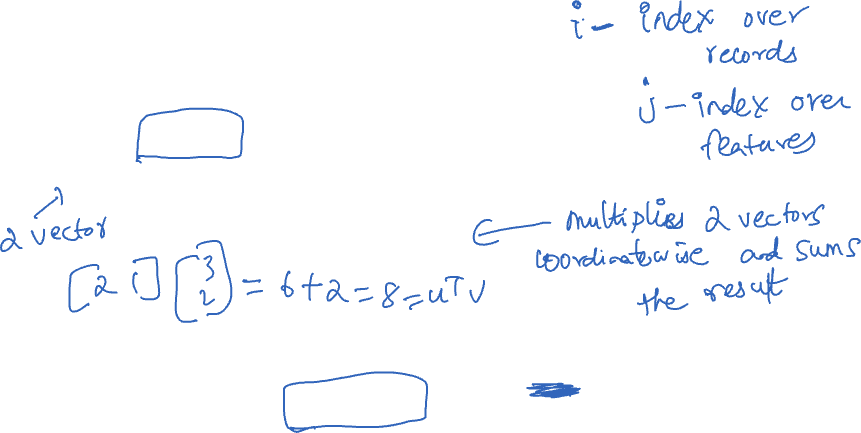 i - index over
records
j - index over
features
2 vector
multiplies 2 vectors
coordinatewise and sums
the result
[2 1] [3 2] = 6+2 = 8 = uᵀv